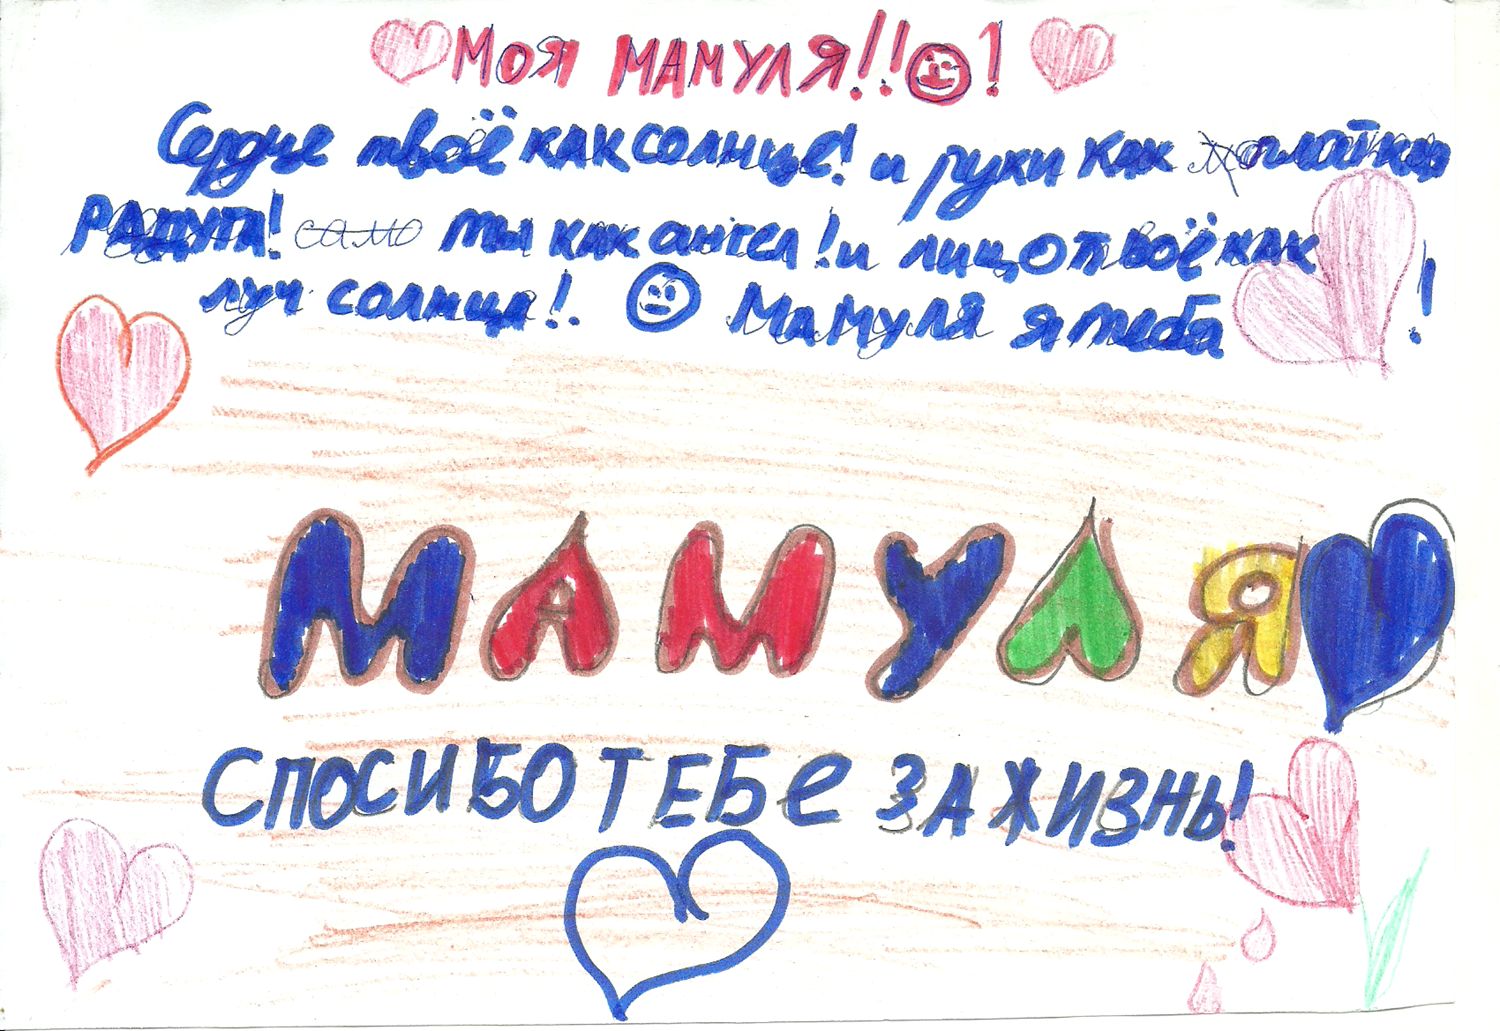 Моя МАМУЛЯ!!!
Сердце твоё как солнце! и руки как платка
РАДУГА! само ты как ангел! и лицо твоё как
луч солнца!. Мамуля я тебя !
МАМУЛЯ
СПОСИБО ТЕБЕ ЗА ЖИЗНЬ!